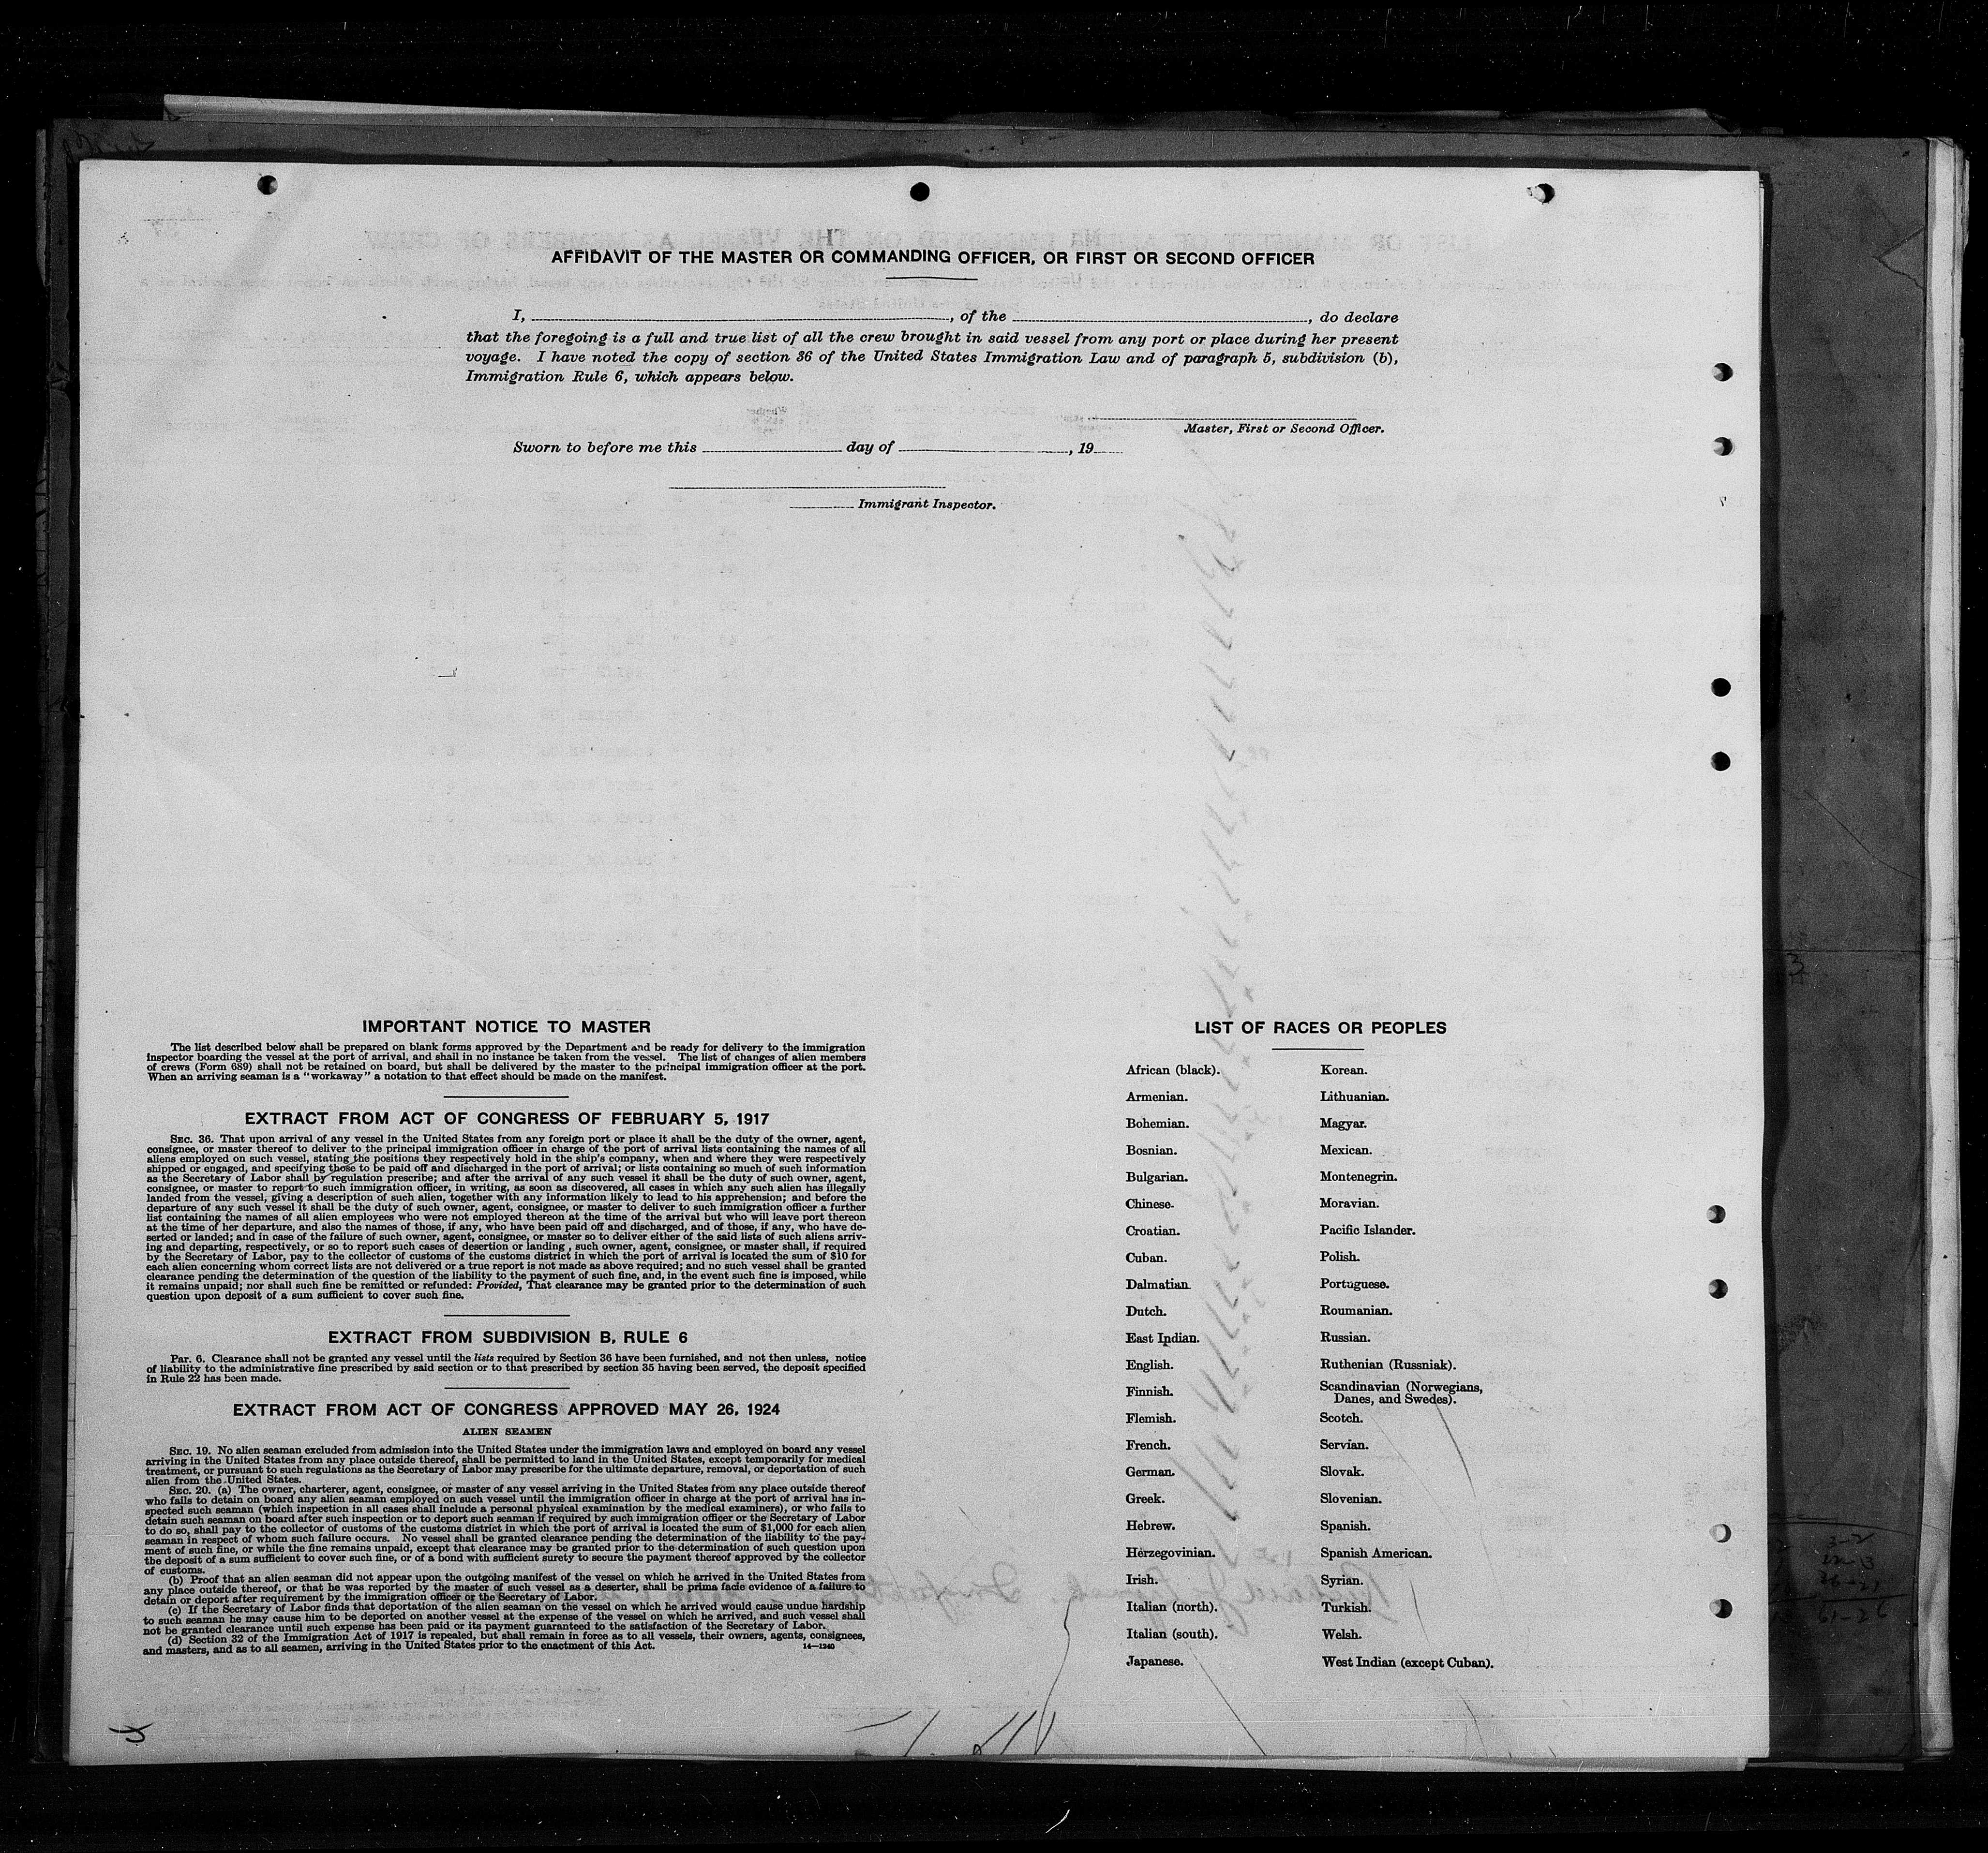 AFFIDAVIT OF THE MASTER OR COMMANDING OFFICER, OR FIRST OR SECOND OFFICER
I, , of the , do declare
that the foregoing is a full and true list of all the crew brought in said vessel from any port or place during her present
voyage. I have noted the copy of section 36 of the United States Immigration Law and of paragraph 5, subdivision (b),
Immigration Rule 6, which appears below.
Master, First or Second Officer.
Sworn to before me this day of , 19
Immigrant Inspector.
IMPORTANT NOTICE TO MASTER
The list described below shall be prepared on blank forms approved by the Department and be ready for delivery to the immigration
inspector boarding the vessel at the port of arrival, and shall in no instance be taken from the vessel. The list of changes of alien members
of crews (Form 689) shall not be retained on board, but shall be delivered by the master to the principal immigration officer at the port.
When an arriving seaman is a "workaway" a notation to that effect should be made on the manifest.
EXTRACT FROM ACT OF CONGRESS OF FEBRUARY 5, 1917
SEC. 36. That upon arrival of any vessel in the United States from any foreign port or place it shall be the duty of the owner, agent,
consignee, or master thereof to deliver to the principal immigration officer in charge of the port of arrival lists containing the names of all
aliens employed on such vessel, stating the positions they respectively hold in the ship's company, when and where they were respectively
shipped or engaged, and specifying those to be paid off and discharged in the port of arrival; or lists containing so much of such information
as the Secretary of Labor shall by regulation prescribe; and after the arrival of any such vessel it shall be the duty of such owner, agent,
consignee, or master to report to such immigration officer, in writing, as soon as discovered, all cases in which any such alien has illegally
landed from the vessel, giving a description of such alien, together with any information likely to lead to his apprehension; and before the
departure of any such vessel it shall be the duty of such owner, agent, consignee, or master to deliver to such immigration officer a further
list containing the names of all alien employees who were not employed thereon at the time of the arrival but who will leave port thereon
at the time of her departure, and also the names of those, if any, who have been paid off and discharged, and of those, if any, who have de-
serted or landed; and in case of the failure of such owner, agent, consignee, or master so to deliver either of the said lists of such aliens arriv-
ing and departing, respectively, or so to report such cases of desertion or landing , such owner, agent, consignee, or master shall, if required
by the Secretary of Labor, pay to the collector of customs of the customs district in which the port of arrival is located the sum of $10 for
each alien concerning whom correct lists are not delivered or a true report is not made as above required; and no such vessel shall be granted
clearance pending the determination of the question of the liability to the payment of such fine, and, in the event such fine is imposed, while
it remains unpaid; nor shall such fine be remitted or refunded: Provided, That clearance may be granted prior to the determination of such
question upon deposit of a sum sufficient to cover such fine.
EXTRACT FROM SUBDIVISION B, RULE 6
Par. 6. Clearance shall not be granted any vessel until the lists required by Section 36 have been furnished, and not then unless, notice
of liability to the administrative fine prescribed by said section or to that prescribed by section 35 having been served, the deposit specified
in Rule 22 has been made.
EXTRACT FROM ACT OF CONGRESS APPROVED MAY 26, 1924
ALIEN SEAMEN
SEC. 19. No alien seaman excluded from admission into the United States under the immigration laws and employed on board any vessel
arriving in the United States from any place outside thereof, shall be permitted to land in the United States, except temporarily for medical
treatment, or pursuant to such regulations as the Secretary of Labor may prescribe for the ultimate departure, removal, or deportation of such
alien from the United States.
SEC. 20. (a) The owner, charterer, agent, consignee, or master of any vessel arriving in the United States from any place outside thereof
who fails to detain on board any alien seaman employed on such vessel until the immigration officer in charge at the port of arrival has in-
spected such seaman (which inspection in all cases shall include a personal physical examination by the medical examiners), or who fails to
detain such seaman on board after such inspection or to deport such seaman if required by such immigration officer or the Secretary of Labor
to do so, shall pay to the collector of customs of the customs district in which the port of arrival is located the sum of $1,000 for each alien
seaman in respect of whom such failure occurs. No vessel shall be granted clearance pending the determination of the liability to the pay-
ment of such fine, or while the fine remains unpaid, except that clearance may be granted prior to the determination of such question upon
the deposit of a sum sufficient to cover such fine, or of a bond with sufficient surety to secure the payment thereof approved by the collector
of customs.
(b) Proof that an alien seaman did not appear upon the outgoing manifest of the vessel on which he arrived in the United States from
any place outside thereof, or that he was reported by the master of such vessel as a deserter, shall be prima facie evidence of a failure to
detain or deport after requirement by the immigration officer or the Secretary of Labor.
(c) If the Secretary of Labor finds that deportation of the alien seaman on the vessel on which he arrived would cause undue hardship
to such seaman he may cause him to be deported on another vessel at the expense of the vessel on which he arrived, and such vessel shall
not be granted clearance until such expense has been paid or its payment guaranteed to the satisfaction of the Secretary of Labor.
(d) Section 32 of the Immigration Act of 1917 is repealed, but shall remain in force as to all vessels, their owners, agents, consignees,
and masters, and as to all seamen, arriving in the United States prior to the enactment of this Act. 14—1240
LIST OF RACES OR PEOPLES
African (black).
Armenian.
Bohemian.
Bosnian.
Bulgarian.
Chinese.
Croatian.
Cuban.
Dalmatian
Dutch.
East Indian.
English.
Finnish.
Flemish.
French.
German.
Greek.
Hebrew.
Herzegovinian.
Irish.
Italian (north).
Italian (south).
Japanese.
Korean.
Lithuanian.
Magyar.
Mexican.
Montenegrin.
Moravian.
Pacific Islander.
Polish.
Portuguese.
Roumanian.
Russian.
Ruthenian (Russniak).
Scandinavian (Norwegians,
Danes, and Swedes).
Scotch.
Servian.
Slovak.
Slovenian.
Spanish.
Spanish American.
Syrian.
Turkish.
Welsh.
West Indian (except Cuban).